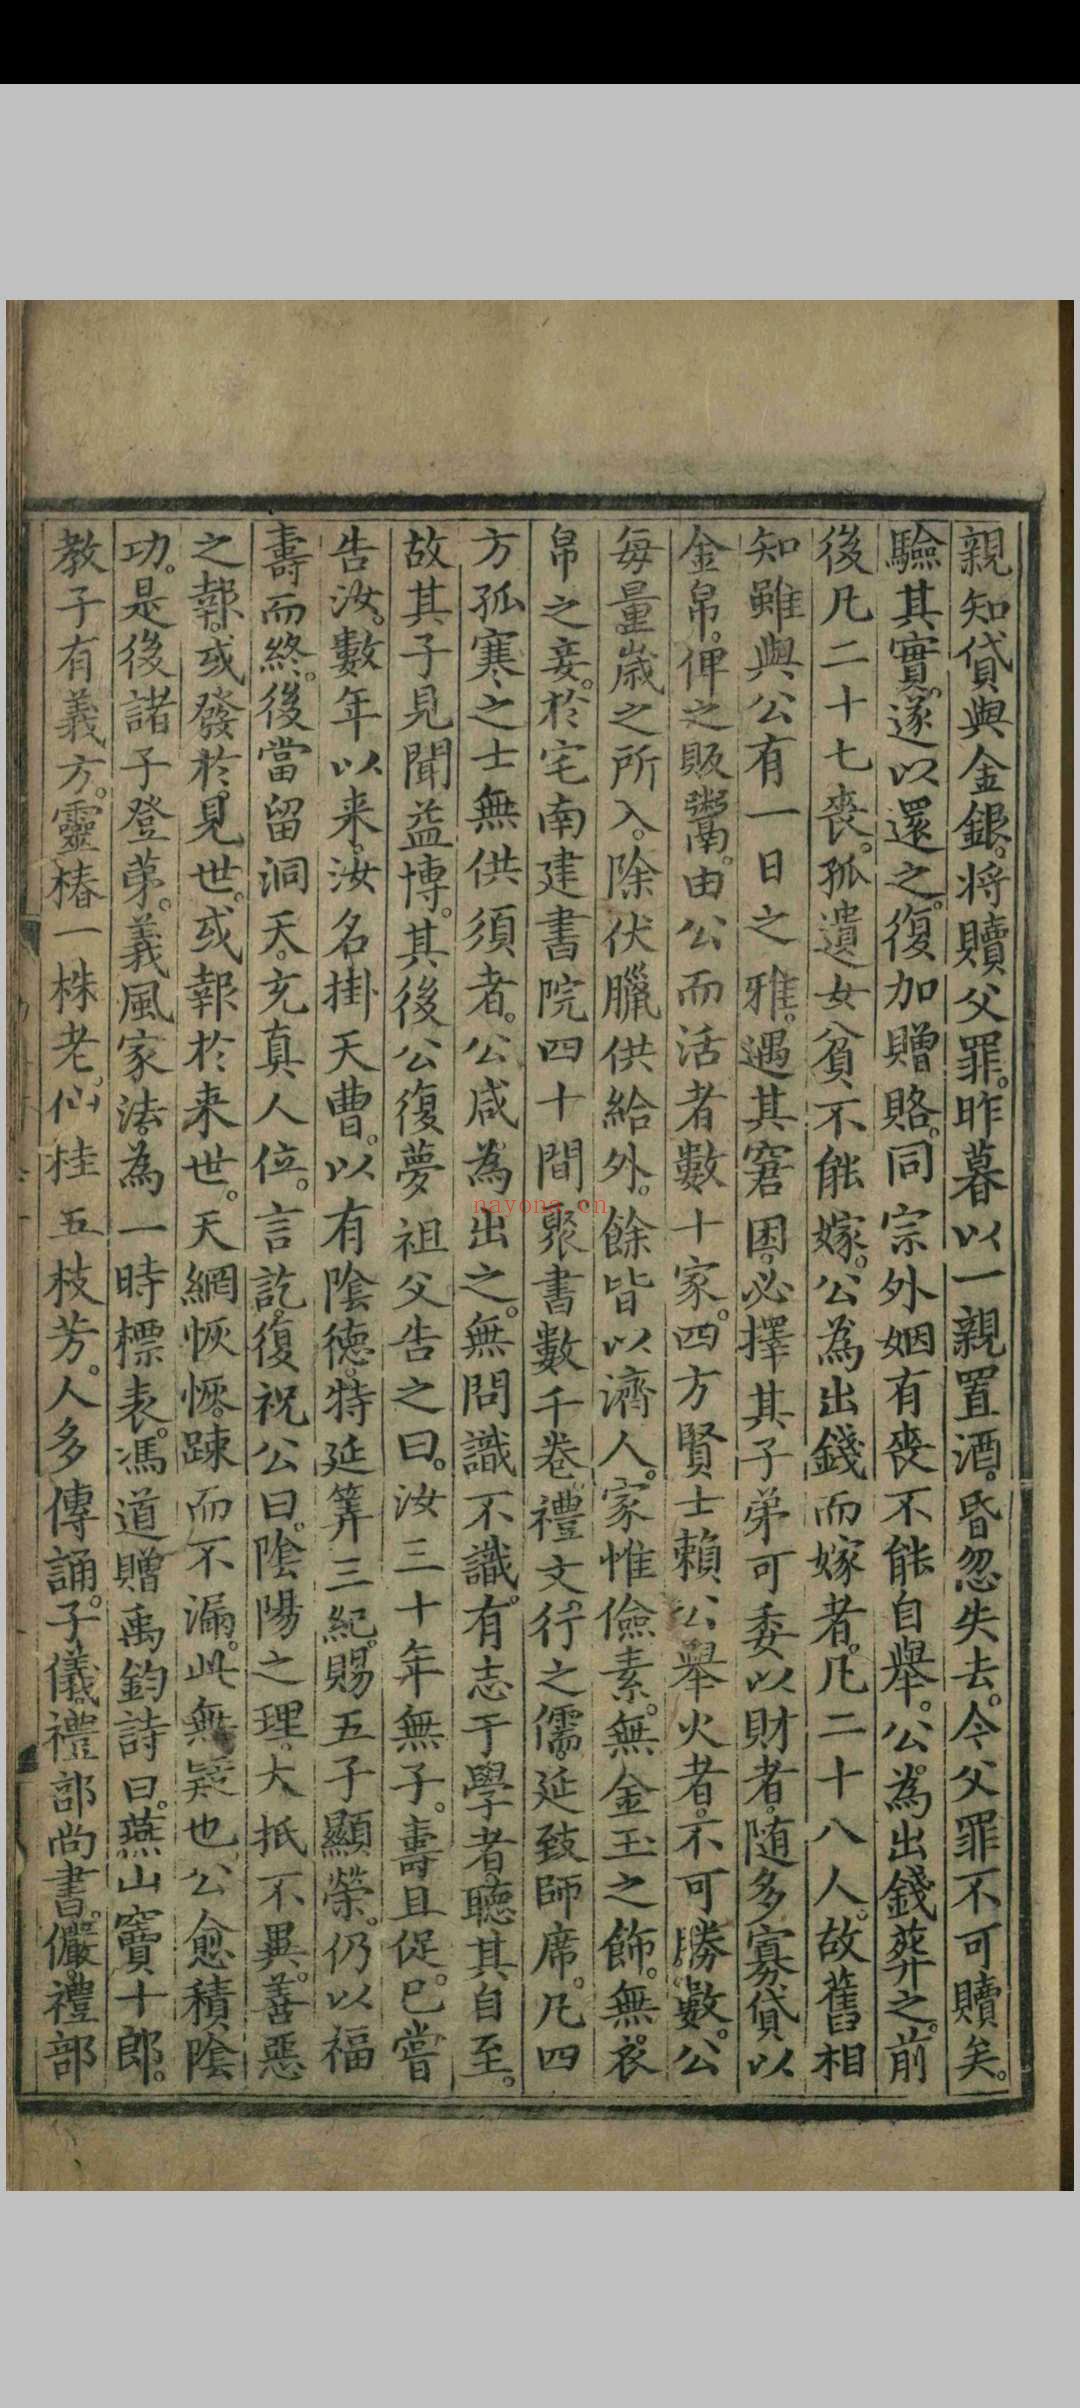 親知貸與金銀。将贖父罪。昨暮以一親置酒。昏忽失去。今父罪不可贖矣。
驗其實。遂以還之。復加贈賂。同宗外姻有喪不能自舉。公為出錢葬之。前
後凡二十七喪。孤遺女貧不能嫁。公為出錢而嫁者。凡二十八人。故舊相
知雖與公有一日之雅。遇其窘困。必擇其子弟可委以財者。随多寡貸以
金帛。俾之販鬻。由公而活者數十家。四方賢士賴公舉火者。不可勝數。公
每量歲之所入。除伏臘供給外。餘皆以濟人。家惟儉素。無金玉之飾。無衣
帛之妾。於宅南建書院四十間。聚書數千卷。禮文行之儒。延致師席。凡四
方孤寒之士無供須者。公咸為出之。無問識不識。有志于學者。聽其自至。
故其子見聞益博。其後公復夢祖父告之曰。汝三十年無子。壽且促。已嘗
告汝。數年以来。汝名掛天曹。以有陰德。特延筭三紀。賜五子顯榮。仍以福
壽而終。後當留洞天。充真人位。言訖。復祝公曰。陰陽之理。大抵不異。善惡
之報。或發於見世。或報於来世。天網恢恢。踈而不漏。此無疑也。公愈積陰
功。是後諸子登第。義風家法。為一時標表。馮道贈禹鈞詩曰。燕山竇十郎。
教子有義方。靈椿一株老。仙桂五枝芳。人多傳誦。子儀。禮部尚書。儼禮部
nayona.cn